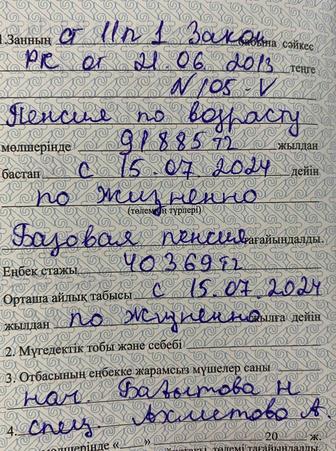 1.Занның ст 11 п 1 Закон бабына сәйкес
РК от 21.06.2013 теңге
N 105-V
Пенсия по возрасту
мөлшерінде 91885 тг жылдан
бастап с 15.07.2024 дейін
по жизненно
(төлемнің түрлері)
Базовая пенсия тағайындалды.
Еңбек стажы 40369 тг
Орташа айлық табысы с 15.07.2024
жылдан по жизненно жылға дейін
2. Мүгедектік тобы және себебі
3. Отбасының еңбекке жарамсыз мүшелер саны
нач. Н
4. спец. Ахметова А.
мөлшерінде « » 20 ж.
тағайындалды